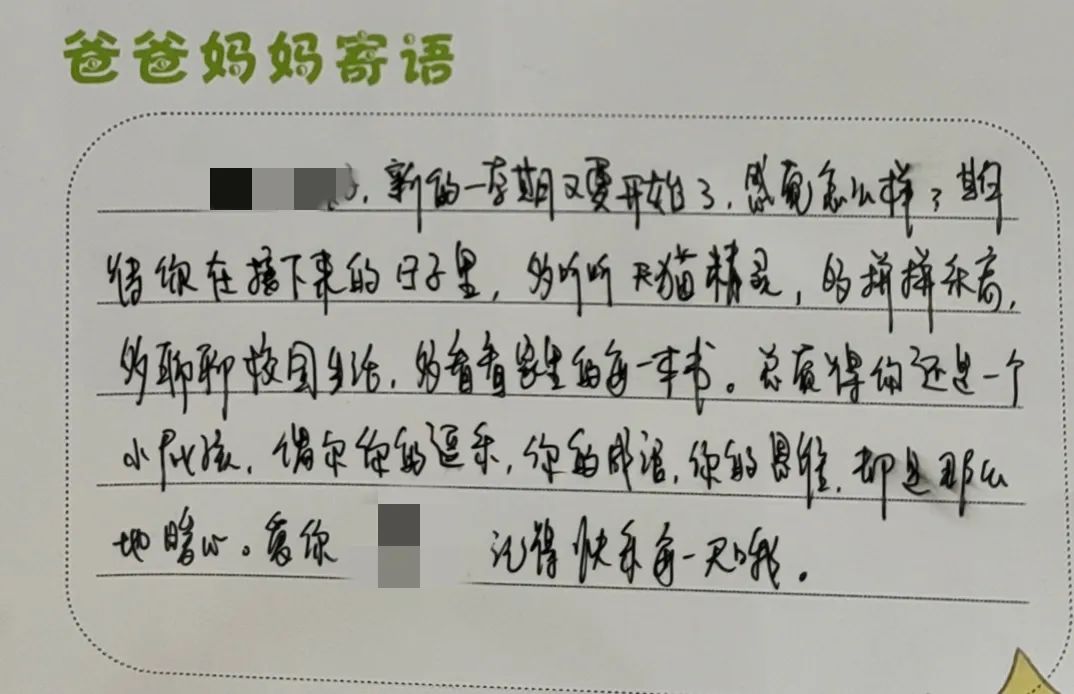 爸爸妈妈寄语
，新的一学期又要开始了，感觉怎么样？期
待你在接下来的日子里，多听听天猫精灵，多拼拼乐高，
多聊聊校园生活，多看看家里的每一本书。总觉得你还是一个
小屁孩，偶尔你的逗乐，你的成语，你的思维，却是那么
地暖心。爱你
记得快乐每一天哦。